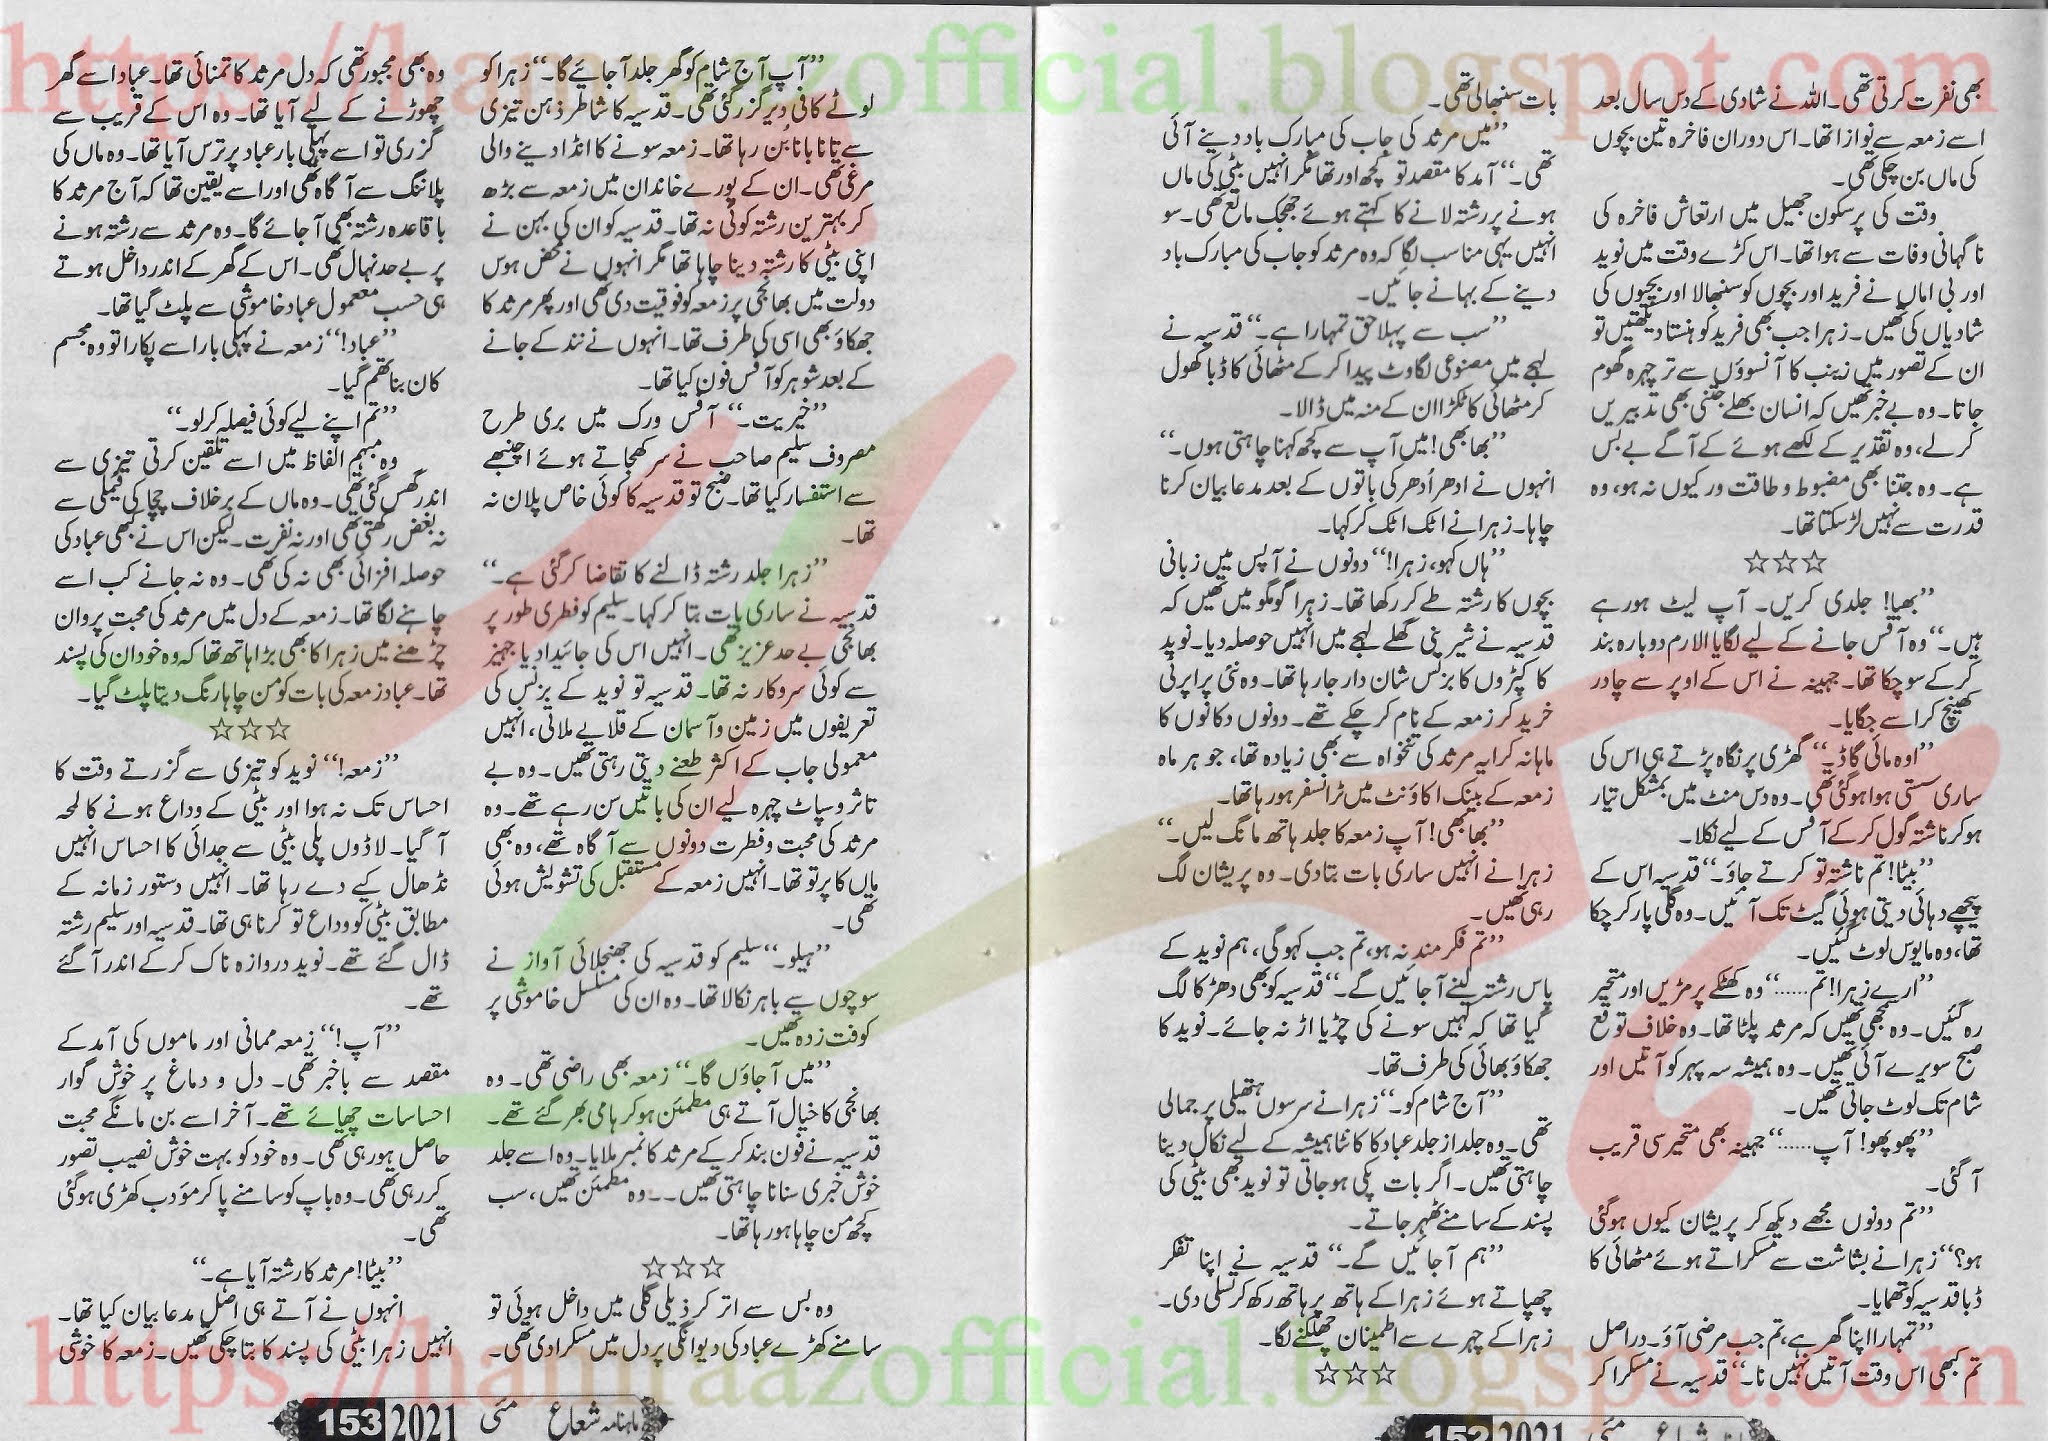 https://hamraazofficial.blogspot.com
بھی نفرت کرتی تھی۔ اللہ نے شادی کے دس سال بعد
اسے زمعہ سے نوازا تھا۔ اس دوران فاخرہ تین بچوں
کی ماں بن چکی تھی۔
وقت کی پرسکون جھیل میں ارتعاش فاخرہ کی
ناگہانی وفات سے ہوا تھا۔ اس کڑے وقت میں نوید
اور بی اماں نے فرید اور بچوں کو سنبھالا اور بچیوں کی
شادیاں کی تھیں۔ زہرا جب بھی فرید کو ہنستا دیکھتیں تو
ان کے تصور میں زینب کا آنسوؤں سے تر چہرہ گھوم
جاتا۔ وہ بے خبر تھیں کہ انسان بھلے جتنی بھی تدبیریں
کرلے، وہ تقدیر کے لکھے ہوئے کے آگے بے بس
ہے۔ وہ جتنا بھی مضبوط و طاقت ور کیوں نہ ہو، وہ
قدرت سے نہیں لڑ سکتا تھا۔
☆☆☆
’’بھیا! جلدی کریں۔ آپ لیٹ ہورہے
ہیں۔‘‘ وہ آفس جانے کے لیے لگایا الارم دوبارہ بند
کرکے سوچکا تھا۔ جہینہ نے اس کے اوپر سے چادر
کھینچ کر اسے جگایا۔
’’اوہ مائی گاڈ۔‘‘ گھڑی پر نگاہ پڑتے ہی اس کی
ساری سستی ہوا ہوگئی تھی۔ وہ دس منٹ میں بمشکل تیار
ہوکر ناشتہ گول کرکے آفس کے لیے نکلا۔
’’بیٹا! تم ناشتہ تو کرتے جاؤ۔‘‘ قدسیہ اس کے
پیچھے دہائی دیتی ہوئی گیٹ تک آئیں۔ وہ گلی پار کرچکا
تھا، وہ مایوس لوٹ گئیں۔
’’ارے زہرا! تم......‘‘ وہ کھٹکے پر مڑیں اور متحیر
رہ گئیں۔ وہ سمجھی تھیں کہ مرثد پلٹا تھا۔ وہ خلاف توقع
صبح سویرے آئی تھیں۔ وہ ہمیشہ سہ پہر کو آتیں اور
شام تک لوٹ جاتی تھیں۔
’’پھوپھو! آپ......‘‘ جہینہ بھی متحیر سی قریب
آگئی۔
’’تم دونوں مجھے دیکھ کر پریشان کیوں ہوگئی
ہو؟‘‘ زہرا نے بشاشت سے مسکراتے ہوئے مٹھائی کا
ڈبا قدسیہ کو تھمایا۔
’’تمہارا اپنا گھر ہے، تم جب مرضی آؤ۔ دراصل
تم کبھی اس وقت آتیں نہیں نا۔‘‘ قدسیہ نے مسکرا کر
بات سنبھالی تھی۔
’’میں مرثد کی جاب کی مبارک باد دینے آئی
تھی۔‘‘ آمد کا مقصد تو کچھ اور تھا مگر انہیں بیٹی کی ماں
ہونے پر رشتہ لانے کا کہتے ہوئے جھجک مانع تھی۔ سو
انہیں یہی مناسب لگا کہ وہ مرثد کو جاب کی مبارک باد
دینے کے بہانے جائیں۔
’’سب سے پہلا حق تمہارا ہے۔‘‘ قدسیہ نے
لہجے میں مصنوعی لگاوٹ پیدا کرکے مٹھائی کا ڈبا کھول
کر مٹھائی کا ٹکڑا ان کے منہ میں ڈالا۔
’’بھابھی! میں آپ سے کچھ کہنا چاہتی ہوں۔‘‘
انہوں نے ادھر اُدھر کی باتوں کے بعد مدعا بیان کرنا
چاہا۔ زہرا نے اٹک اٹک کر کہا۔
’’ہاں کہو، زہرا!‘‘ دونوں نے آپس میں زبانی
بچوں کا رشتہ طے کر رکھا تھا۔ زہرا گومگو میں تھیں کہ
قدسیہ نے شیرینی گھلے لہجے میں انہیں حوصلہ دیا۔ نوید
کا کپڑوں کا بزنس شان دار جارہا تھا۔ وہ نئی پراپرٹی
خرید کر زمعہ کے نام کرچکے تھے۔ دونوں دکانوں کا
ماہانہ کرایہ مرثد کی تنخواہ سے بھی زیادہ تھا، جو ہر ماہ
زمعہ کے بینک اکاؤنٹ میں ٹرانسفر ہورہا تھا۔
’’بھابھی! آپ زمعہ کا جلد ہاتھ مانگ لیں۔‘‘
زہرا نے انہیں ساری بات بتادی۔ وہ پریشان لگ
رہی تھیں۔
’’تم فکر مند نہ ہو، تم جب کہوگی، ہم نوید کے
پاس رشتہ لینے آجائیں گے۔‘‘ قدسیہ کو بھی دھڑکا لگ
گیا تھا کہ کہیں سونے کی چڑیا اڑ نہ جائے۔ نوید کا
جھکاؤ بھائی کی طرف تھا۔
’’آج شام کو۔‘‘ زہرا نے سرسوں ہتھیلی پر جمالی
تھی۔ وہ جلد از جلد عباد کا کانٹا ہمیشہ کے لیے نکال دینا
چاہتی تھیں۔ اگر بات پکی ہوجاتی تو نوید بھی بیٹی کی
پسند کے سامنے ٹھہر جاتے۔
’’ہم آجائیں گے۔‘‘ قدسیہ نے اپنا تفکر
چھپاتے ہوئے زہرا کے ہاتھ پر ہاتھ رکھ کر تسلی دی۔
زہرا کے چہرے سے اطمینان چھلکنے لگا۔
☆☆☆
’’آپ آج شام کو گھر جلد آجائیے گا۔‘‘ زہرا کو
لوٹے کافی دیر گزر گئی تھی۔ قدسیہ کا شاطر ذہن تیزی
سے تانا بانا بُن رہا تھا۔ زمعہ سونے کا انڈا دینے والی
مرغی تھی۔ ان کے پورے خاندان میں زمعہ سے بڑھ
کر بہترین رشتہ کوئی نہ تھا۔ قدسیہ کو ان کی بہن نے
اپنی بیٹی کا رشتہ دینا چاہا تھا مگر انہوں نے محض ہوس
دولت میں بھانجی پر زمعہ کو فوقیت دی تھی اور پھر مرثد کا
جھکاؤ بھی اسی کی طرف تھا۔ انہوں نے نند کے جانے
کے بعد شوہر کو آفس فون کیا تھا۔
’’خیریت۔‘‘ آفس ورک میں بری طرح
مصروف سلیم صاحب نے سر کھجاتے ہوئے اچنبھے
سے استفسار کیا تھا۔ صبح تو قدسیہ کا کوئی خاص پلان نہ
تھا۔
’’زہرا جلد رشتہ ڈالنے کا تقاضا کرگئی ہے۔‘‘
قدسیہ نے ساری بات بتا کر کہا۔ سلیم کو فطری طور پر
بھانجی بے حد عزیز تھی۔ انہیں اس کی جائیداد یا جہیز
سے کوئی سروکار نہ تھا۔ قدسیہ تو نوید کے بزنس کی
تعریفوں میں زمین و آسمان کے قلابے ملاتی، انہیں
معمولی جاب کے اکثر طعنے دیتی رہتی تھیں۔ وہ بے
تاثر و سپاٹ چہرہ لیے ان کی باتیں سن رہے تھے۔ وہ
مرثد کی محبت و فطرت دونوں سے آگاہ تھے، وہ بھی
ماں کا پرتو تھا۔ انہیں زمعہ کے مستقبل کی تشویش ہوئی
تھی۔
’’ہیلو۔‘‘ سلیم کو قدسیہ کی جھنجلائی آواز نے
سوچوں سے باہر نکالا تھا۔ وہ ان کی مسلسل خاموشی پر
کوفت زدہ تھیں۔
’’میں آجاؤں گا۔‘‘ زمعہ بھی راضی تھی۔ وہ
بھانجی کا خیال آتے ہی مطمئن ہوکر ہامی بھر گئے تھے۔
قدسیہ نے فون بند کرکے مرثد کا نمبر ملایا۔ وہ اسے جلد
خوش خبری سنانا چاہتی تھیں۔۔۔ وہ مطمئن تھیں، سب
کچھ من چاہا ہورہا تھا۔
☆☆☆
وہ بس سے اتر کر ذیلی گلی میں داخل ہوئی تو
سامنے کھڑے عباد کی دیوانگی پر دل میں مسکرا دی تھی۔
وہ بھی مجبور تھی کہ دل مرثد کا تمنائی تھا۔ عباد اسے گھر
چھوڑنے کے لیے آیا تھا۔ وہ اس کے قریب سے
گزری تو اسے پہلی بار عباد پر ترس آیا تھا۔ وہ ماں کی
پلاننگ سے آگاہ تھی اور اسے یقین تھا کہ آج مرثد کا
باقاعدہ رشتہ بھی آجائے گا۔ وہ مرثد سے رشتہ ہونے
پر بے حد نہال تھی۔ اس کے گھر کے اندر داخل ہوتے
ہی حسب معمول عباد خاموشی سے پلٹ گیا تھا۔
’’عباد!‘‘ زمعہ نے پہلی بار اسے پکارا تو وہ مجسم
کان بنا تھم گیا۔
’’تم اپنے لیے کوئی فیصلہ کرلو۔‘‘
وہ مبہم الفاظ میں اسے تلقین کرتی تیزی سے
اندر گھس گئی تھی۔ وہ ماں کے برخلاف چچا کی فیملی سے
نہ بغض رکھتی تھی اور نہ نفرت۔ لیکن اس نے کبھی عباد کی
حوصلہ افزائی بھی نہ کی تھی۔ وہ نہ جانے کب اسے
چاہنے لگا تھا۔ زمعہ کے دل میں مرثد کی محبت پروان
چڑھنے میں زہرا کا بھی بڑا ہاتھ تھا کہ وہ خود ان کی پسند
تھا۔ عباد زمعہ کی بات کو من چاہا رنگ دیتا پلٹ گیا۔
☆☆☆
’’زمعہ!‘‘ نوید کو تیزی سے گزرتے وقت کا
احساس تک نہ ہوا اور بیٹی کے وداع ہونے کا لمحہ
آگیا۔ لاڈوں پلی بیٹی سے جدائی کا احساس انہیں
نڈھال کیے دے رہا تھا۔ انہیں دستور زمانہ کے
مطابق بیٹی کو وداع تو کرنا ہی تھا۔ قدسیہ اور سلیم رشتہ
ڈال گئے تھے۔ نوید دروازہ ناک کرکے اندر آگئے
تھے۔
’’آپ!‘‘ زمعہ ممانی اور ماموں کی آمد کے
مقصد سے باخبر تھی۔ دل و دماغ پر خوش گوار
احساسات چھائے تھے۔ آخر اسے بن مانگے محبت
حاصل ہورہی تھی۔ وہ خود کو بہت خوش نصیب تصور
کررہی تھی۔ وہ باپ کو سامنے پاکر مؤدب کھڑی ہوگئی
تھی۔
’’بیٹا! مرثد کا رشتہ آیا ہے۔‘‘
انہوں نے آتے ہی اصل مدعا بیان کیا تھا۔
انہیں زہرا بیٹی کی پسند کا بتا چکی تھیں۔ زمعہ کا خوشی
https://hamraazofficial.blogspot.com
ماہنامہ شعاع مئی 2021 152
ماہنامہ شعاع مئی 2021 153